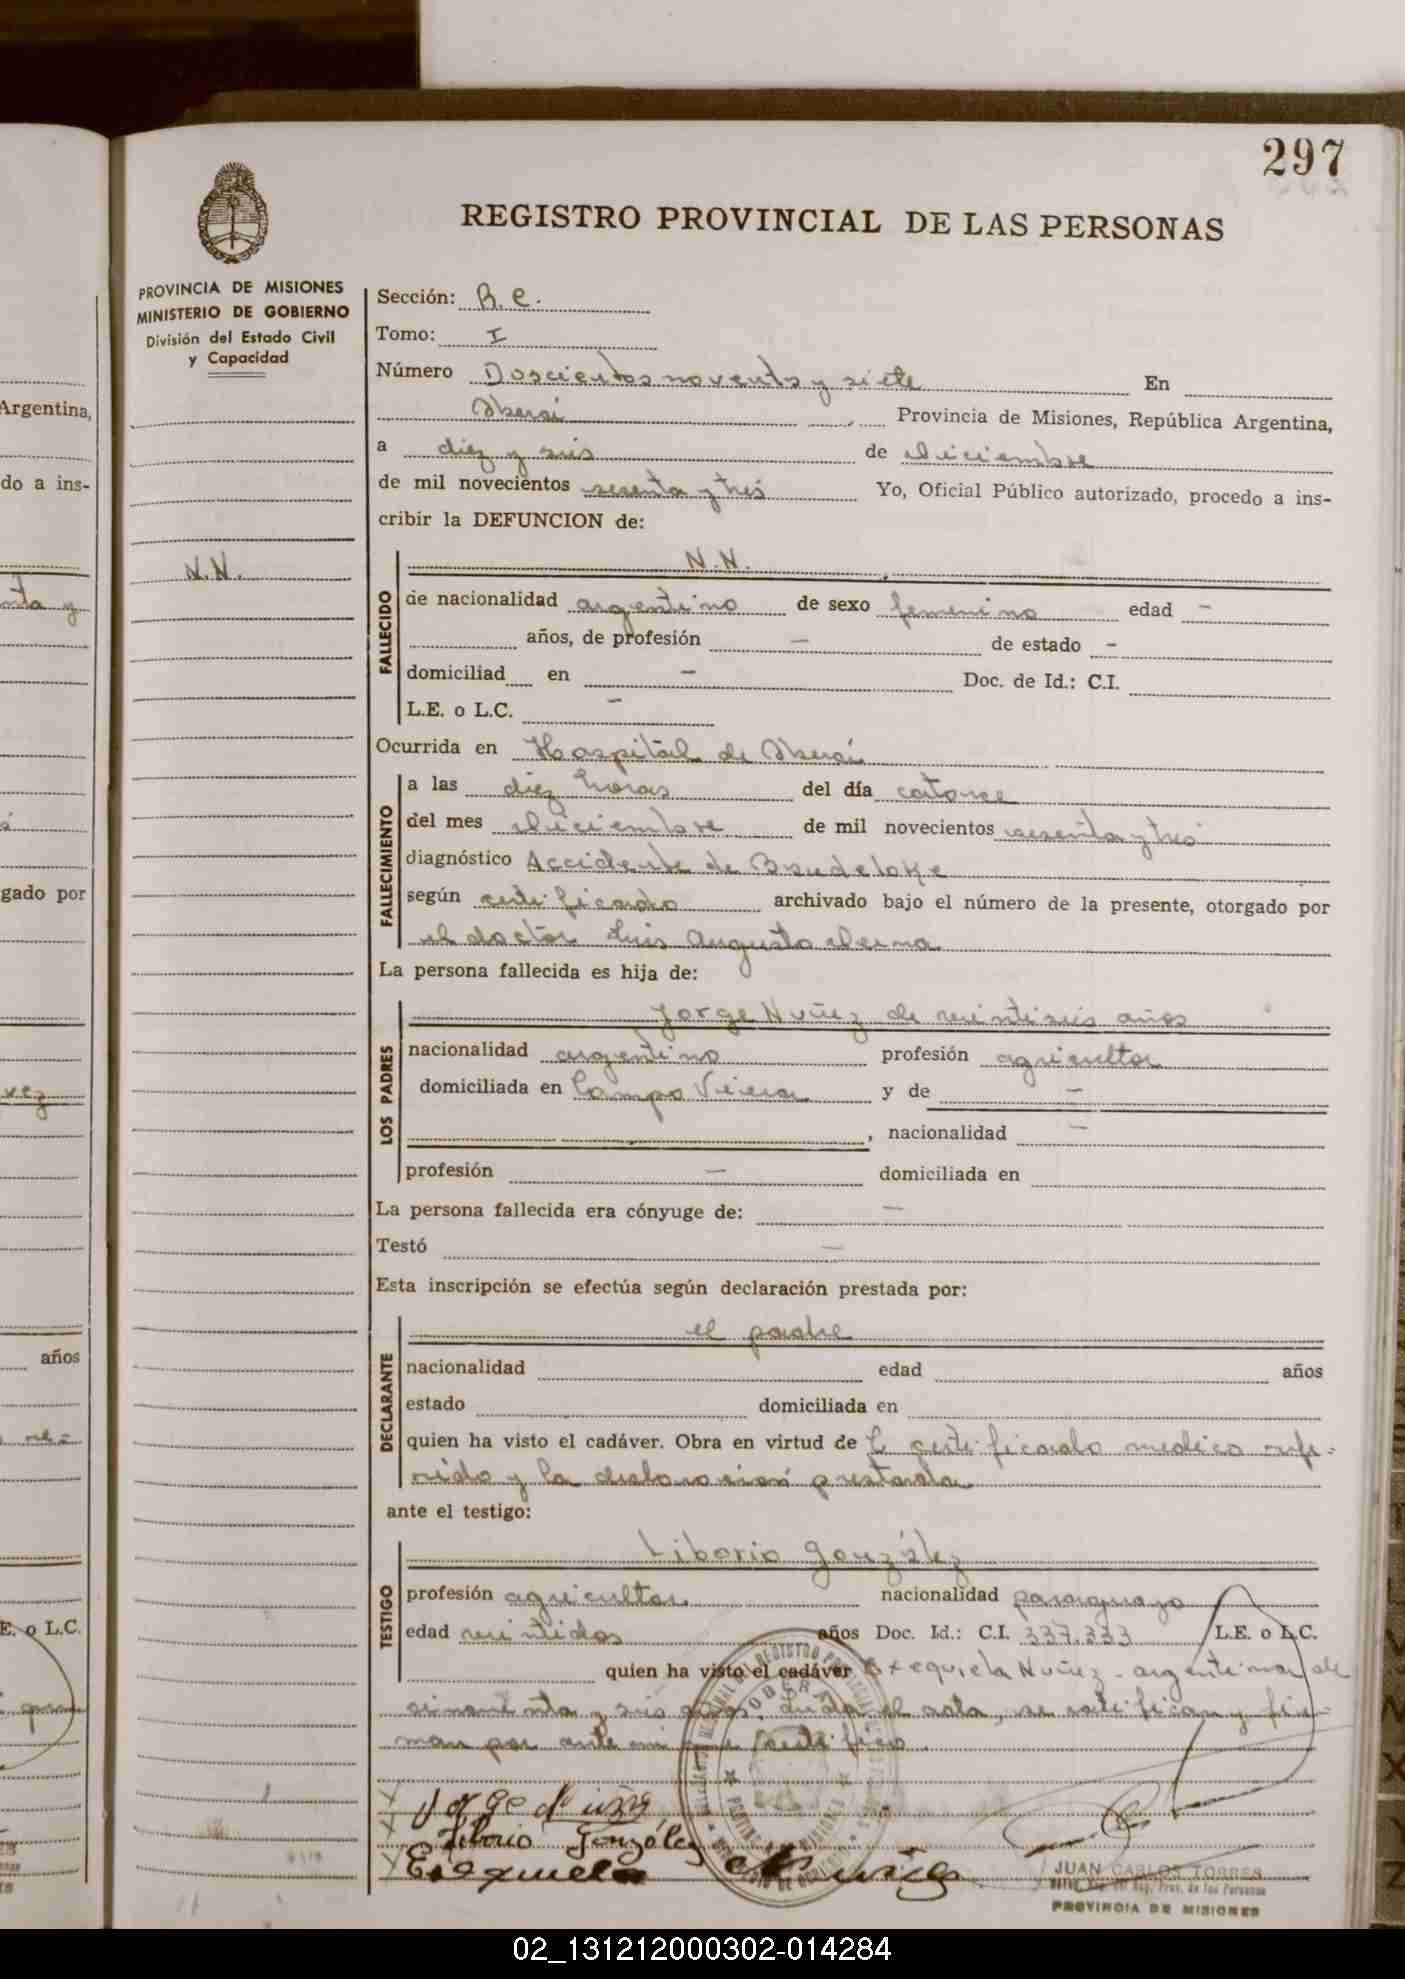 297
REGISTRO PROVINCIAL DE LAS PERSONAS
PROVINCIA DE MISIONES
MINISTERIO DE GOBIERNO
División del Estado Civil
y Capacidad
N.N.
Sección: R.C.
Tomo: I
Número Doscientos noventa y siete En
Oberá Provincia de Misiones, República Argentina,
a diez y seis de diciembre
de mil novecientos sesenta y tres Yo, Oficial Público autorizado, procedo a ins-
cribir la DEFUNCION de:
FALLECIDO
N.N.
de nacionalidad argentino de sexo femenino edad -
años, de profesión - de estado -
domiciliad en - Doc. de Id.: C.I.
L.E. o L.C. -
Ocurrida en Hospital de Oberá
FALLECIMIENTO
a las diez horas del día catorce
del mes diciembre de mil novecientos sesenta y tres
diagnóstico Accidente de Baudeloke
según certificado archivado bajo el número de la presente, otorgado por
el doctor Luis Augusto
La persona fallecida es hija de:
LOS PADRES
Jorge Nuñez de veintiseis años
nacionalidad argentino profesión agricultor
domiciliada en Campo Viera y de -
, nacionalidad -
profesión - domiciliada en
La persona fallecida era cónyuge de: -
Testó -
Esta inscripción se efectúa según declaración prestada por:
DECLARANTE
el padre
nacionalidad edad años
estado domiciliada en
quien ha visto el cadáver. Obra en virtud de certificado medico refe-
rido y la declaración prestada
ante el testigo:
TESTIGO
Liborio González
profesión agricultor nacionalidad paraguayo
edad veintidos años Doc. Id.: C.I. 337.333 L.E. o L.C.
quien ha visto el cadáver Exequiela Nuñez - argentina, de
cincuenta y seis años. Leída el acta, se ratifican y fir-
man por ante mi que certifico.
Jorge Nuñez
Liborio González
Exequiela Nuñez
JUAN CARLOS TORRES
PROVINCIA DE MISIONES
Argentina,
do a ins-
gado por
años
E. o L.C.
02_131212000302-014284